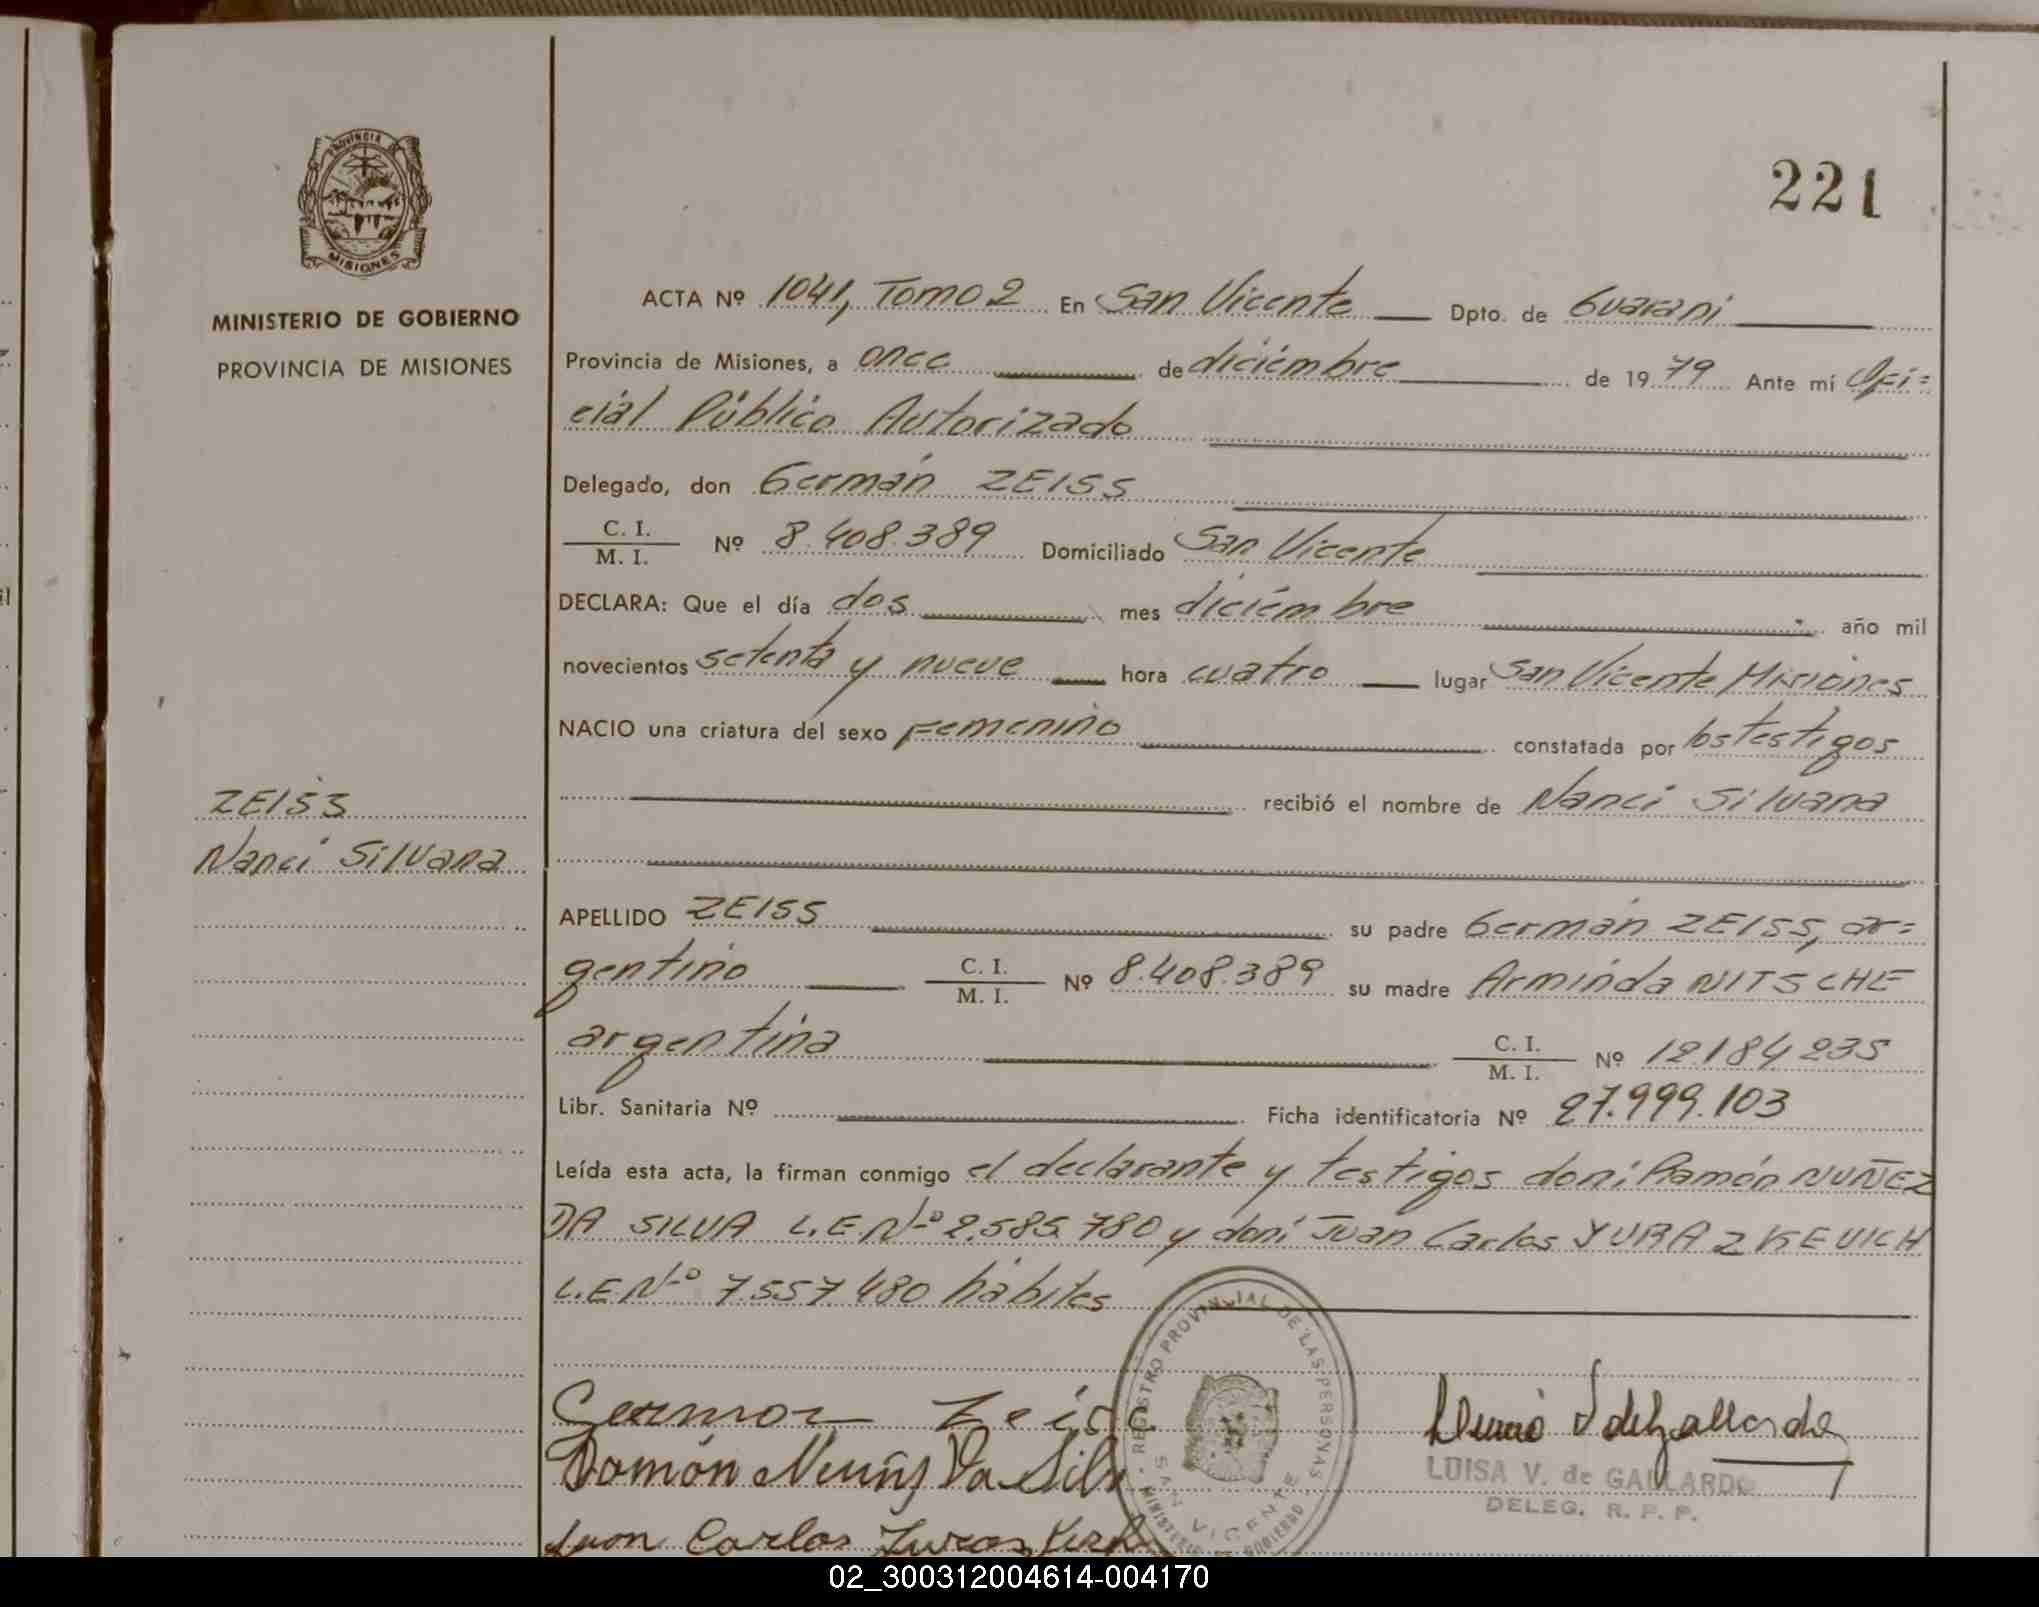 221
PROVINCIA DE
MISIONES
MINISTERIO DE GOBIERNO
PROVINCIA DE MISIONES
ZEISS
Nanci Silvana
ACTA Nº 1041, Tomo 2 En San Vicente Dpto. de Guarani
Provincia de Misiones, a once de diciémbre de 1979 Ante mí Ofi=
cial Público Autorizado
Delegado, don Germán ZEISS
C. I.
M. I. Nº 8.408.389 Domiciliado San Vicente
DECLARA: Que el día dos mes diciémbre año mil
novecientos setenta y nueve hora cuatro lugar San Vicente Misiones
NACIO una criatura del sexo Femenino constatada por los testigos
recibió el nombre de Nanci Silvana
APELLIDO ZEISS su padre Germán ZEISS, ar=
gentino C. I.
M. I. Nº 8.408.389 su madre Arminda NITSCHE
argentina C. I.
M. I. Nº 12184235
Libr. Sanitaria Nº Ficha identificatoria Nº 27.999.103
Leída esta acta, la firman conmigo el declarante y testigos doni Ramón NUÑEZ
DA SILVA L.E.Nº 2.585.780 y doni Juan Carlos YURAZKEVICH
L.E.Nº 7557480 hábiles
REGISTRO PROVINCIAL DE LAS PERSONAS
SAN VICENTE
MINISTERIO DE GOBIERNO
German Zeiss
Ramón Nuñz Da Silv
Juan Carlos
LUISA V. de GALLARDO
DELEG. R. P. P.
02_300312004614-004170